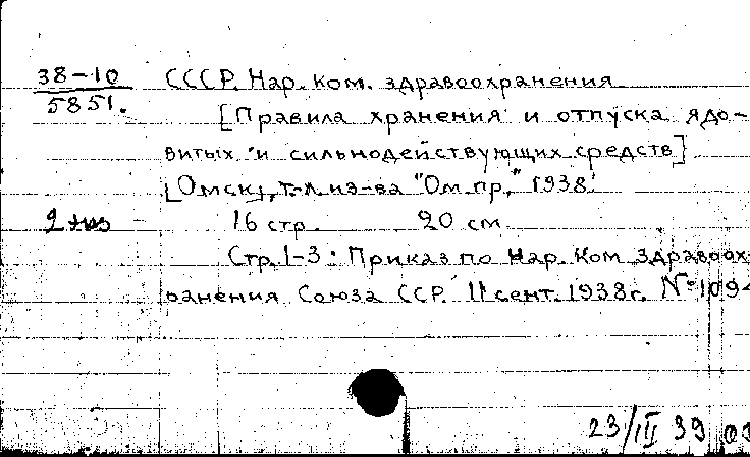 38-10 СССР. Нар. ком. здравоохранения
5851. [Правила хранения и отпуска ядо-
витых и сильнодействующих средств]
[Омск], т-л. из-ва "Ом. пр.," 1938.
2 экз 16 стр. 20 см.
Стр. 1-3: Приказ по Нар. Ком здравоох
ранения Союза ССР. 11 сент. 1938г. № 109
23/III 39